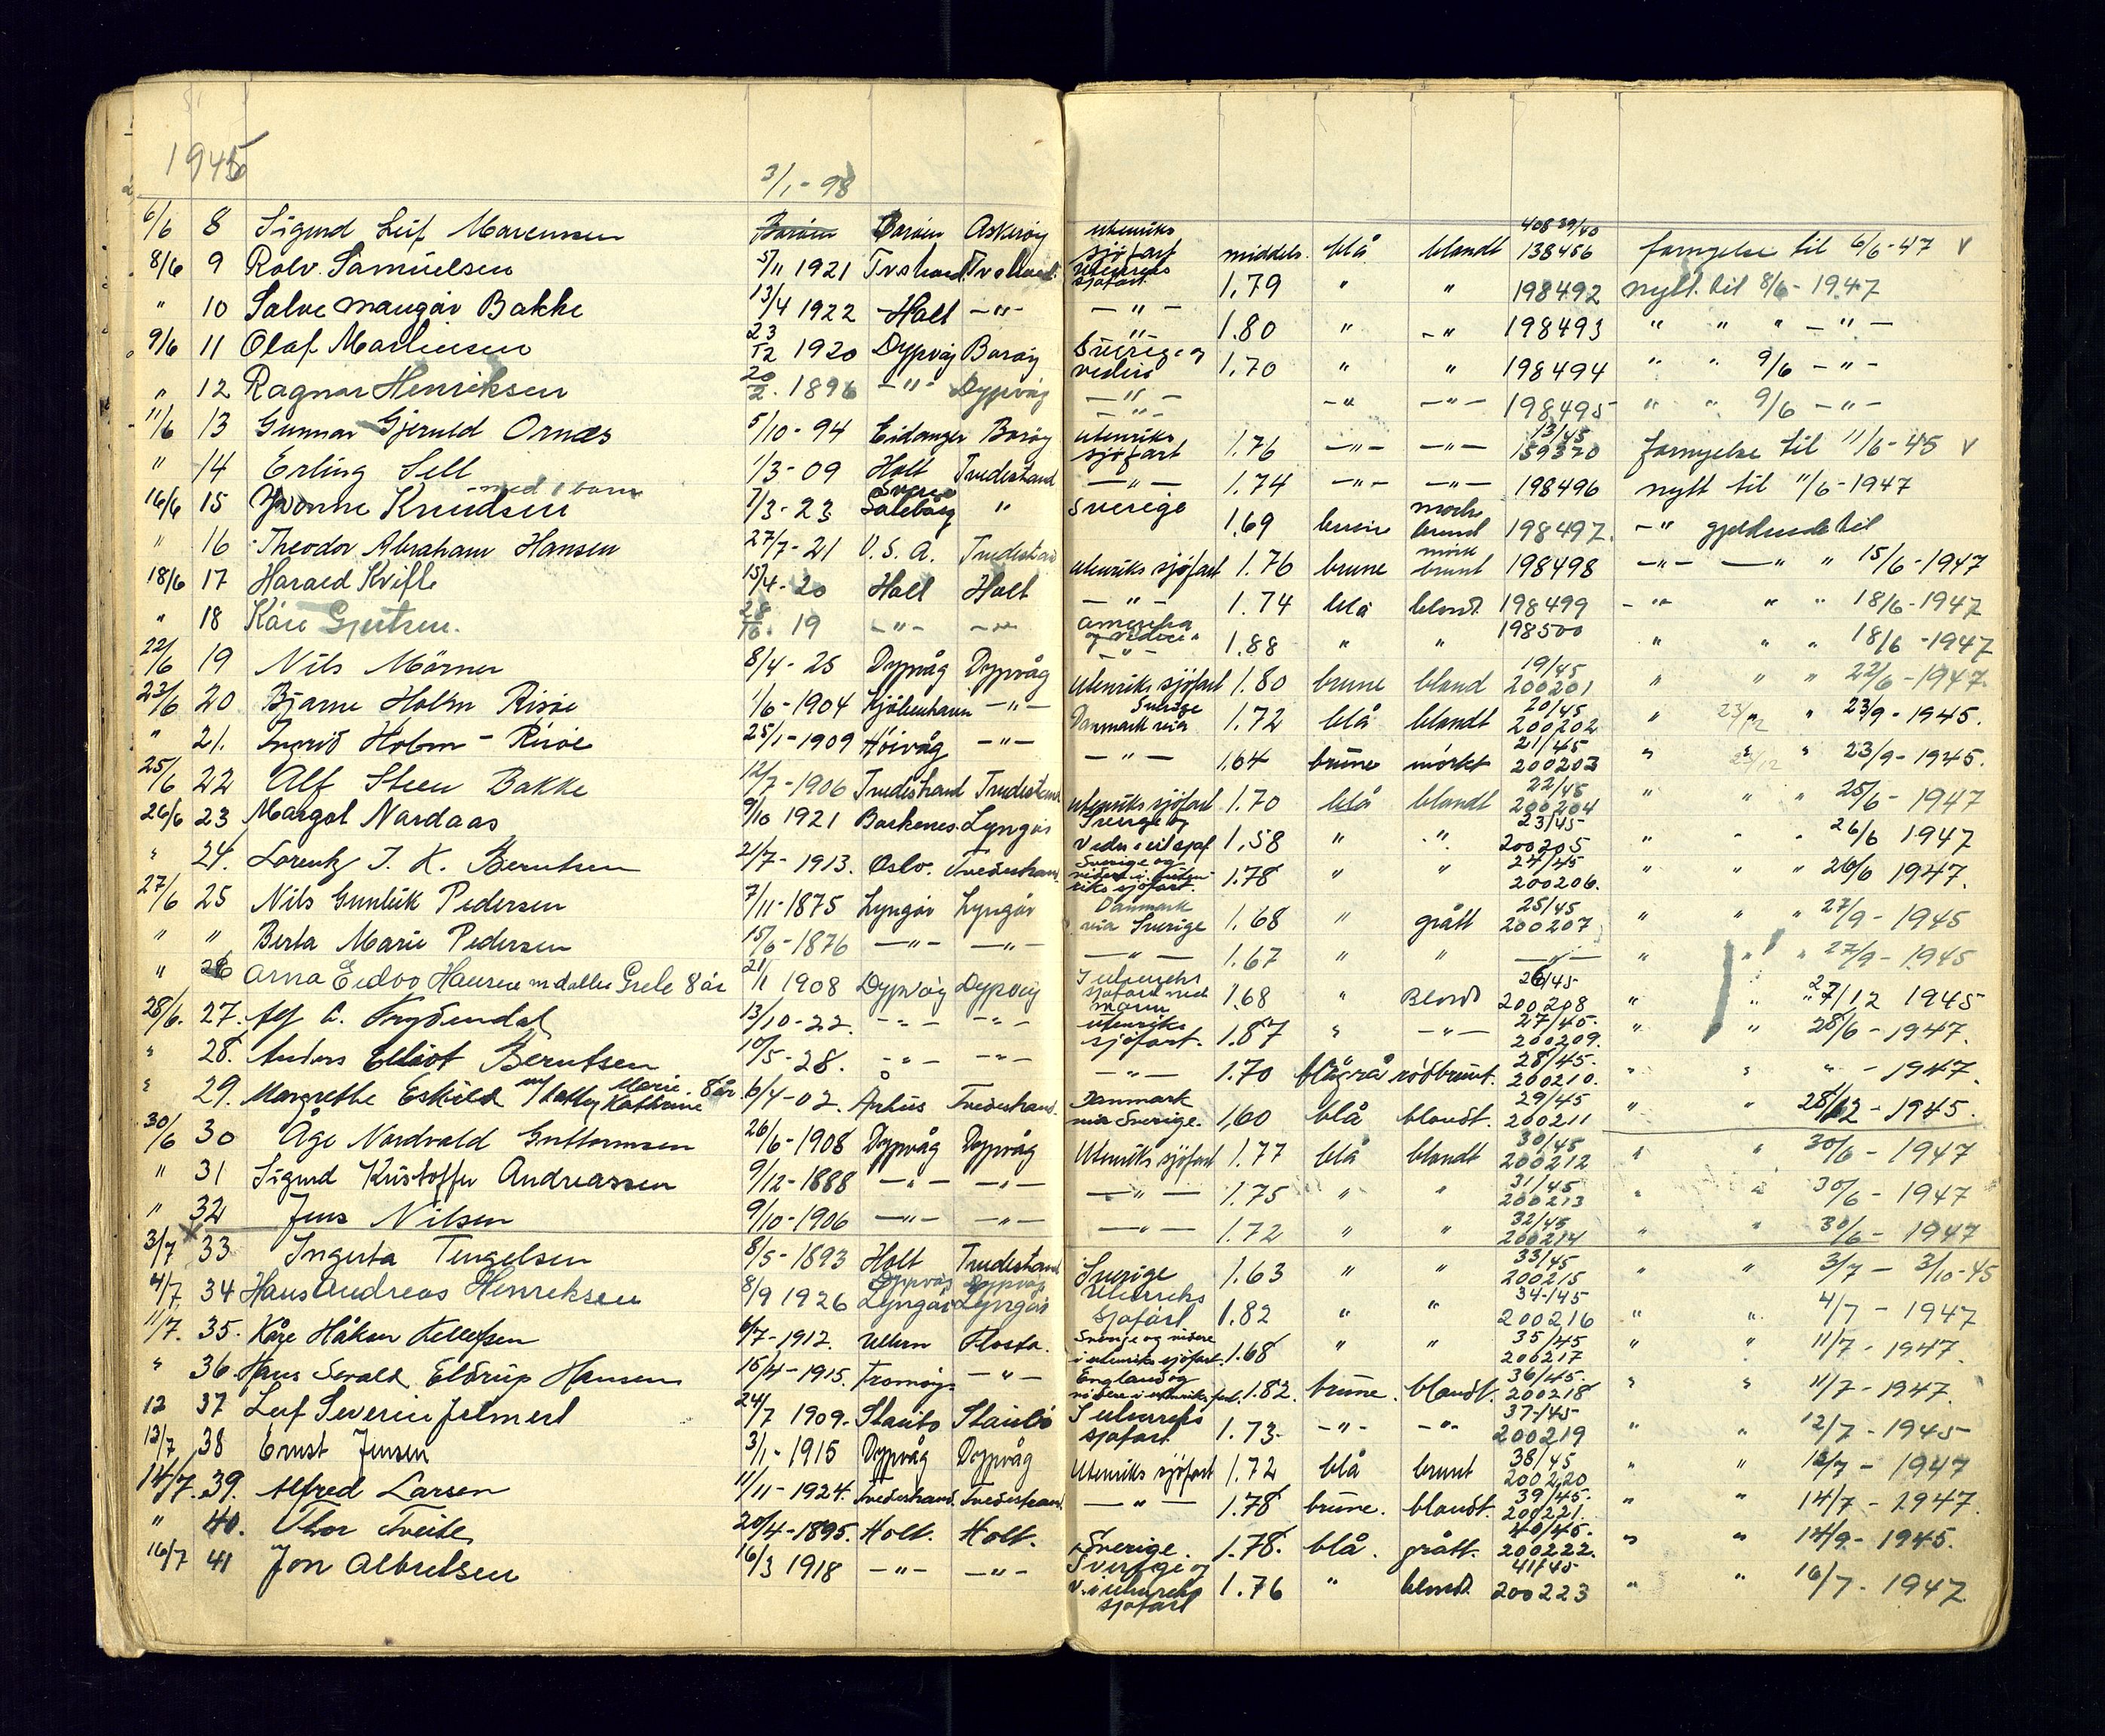 1945
3/1 - 98
6/6 8 Sigurd Leif Marensen Borøen Borøen Askerøy utenriks sjöfart middels. blå blandt 408 39/40 138456 fornyelse til 6/6-47 V
8/6 9 Rolv Samuelsen 5/11 1921 Tvstrand Tvstrand. utenriks sjøfart 1.79 " " 198492 nytt til 8/6-1947
" 10 Salve Maugår Bakke 13/4 1922 Holt -"- -"- 1.80 " -" 198493 " " " -"-
9/6 11 Olaf Martinsen 23/12 1920 Dypvåg Borøy -"- Sverige og videre 1.70 " " 198494 " " 9/6 -"-
" 12 Ragnar Henriksen 20/2. 1896 -"- Dypvåg -"- -" -"- 198495 " " 9/6 -"-
11/6 13 Gunnar Gjeruld Ornæs 5/10-94 Eidanger Borøy -"- utenriks sjöfart 1.76 -"- -"- 13/45 159370 fornyelse til 11/6-45 V
" 14 Erling Sell 1/3-09 Holt Tvedestrand -"- 1.74 -"- -"- 198496 nytt til 11/6-1947
16/6 15 Yvonne Knudsen med 1 barn 7/3-23 " Sverige 1.69 brune mørke brunt 198497. -" gjeldende til
" 16 Theodor Abraham Hansen 27/7-21 U.S.A. Tvedestrand utenriks sjöfart 1.76 brune mörk brunt 198498 -"- -" " 15/6-1947
18/6 17 Harald Kvifte 15/4-20 Holt Holt -"- 1.74 blå blond. 198499 -"- " " 18/6-1947
" 18 Kåre Gjertsen. 28/10. 19 -"- -"- Amerika og videre 1.88 " " 198500 " " " 18/6-1947
22/6 19 Nils Mörner 8/4-25 Dypvåg Dypvåg -"- Utenriks sjöfart 1.80 brune bland 19/45 200201 " " " 22/6-1947.
23/6 20 Bjarne Holm Risøe 1/6-1904 Kjöbenhavn -"- Danmark via Sverige 1.72 blå blandt 20/45 200202 " 23/12 " 23/9-1945.
" 21. Ingrid Holm-Risöe 25/1-1909 Höivåg -"- -"- 1.64 brune mörkt 21/45 200203 " 23/12 " 23/9-1945.
25/6 22 Alf Steen Bakke 12/7-1906 Tvedestrand Tvedestrand utenriks sjöfart 1.70 blå blandt 22/45 200204 " " " 25/6-1947
26/6 23 Margot Nardaas 9/10 1921 Lyngör Sverige og 1.58 " " 23/45 200205 " " " 26/6 1947
" 24. Lorentz J. K. Berntsen 21/7-1913. Oslo. Tvedestrand. Sverige og videre i uten-riks sjöfart. 1.78 " " 24/45 200206. " " " 26/6 1947.
27/6 25 Nils Gunluk Pedersen 7/11-1875 Lyngör Lyngör Danmark via Sverige 1.68 " grått 25/45 200207 " " " 27/9-1945
" " Berta Marie Pedersen 15/6-1876 -"- -"- -"- 1.67 " " -"- " " " 27/9-1945
" 26 Arna Hansen m datter Grete 8 år 21/1 1908 Dypvåg Dypvåg I utenriks sjøfart med mann 1.68 " Blond 26/45 200208 " " " 27/12 1945
28/6. 27. Alf A. Frydendal 13/10-22. -"- -"- utenriks sjöfart. 1.87 " -"- 27/45. 200209. " " 28/6-1947.
" 28. Anders Elliot Berntsen 10/5-28. -"- -"- -"- 1.70 blågrå rödbrunt. 28/45. 200210. " " " -1947.
" 29. Margrethe Eskild m/datter Marie Kathrine 8 år 6/4-02. Århus Tvedestrand. Danmark via Sverige. 1,60 blå blandt. 29/45 200211 " " 28/12-1945.
30/6 30 Åge Nordvald Guttormsen 26/6-1908 Dypvåg Dypvåg Utenriks sjöfart 1.77 blå blandt 30/45 200212 " " 30/6-1947
" 31 Sigurd Kristoffer Andreassen 9/12-1888 -"- -"- -"- 1.75 " " 31/45 200213 " " 30/6-1947
" 32 Jens Nilsen 9/10-1906 -"- -"- -"- 1.72 " " 32/45 200214 " " 30/6-1947
3/7 33 Ingerta Tengelsen 8/5-1893 Holt Tvedestrand Sverige 1.63 " " 33/45 200215 " " 3/7 - 3/10-45
4/7 34 Hans Andreas Henriksen 8/9 1926 Dypvåg Lyngör Dypvåg Lyngör Utenriks sjøfart 1.82 " " 34/45 200216 " " 4/7-1947
11/7. 35. Kåre Håkon Kellefsen 6/7-1912. Ullern Flosta. Sverige og videre i utenriks sjöfart. 1.68 " " 35/45 200217 " " 11/7-1947.
" 36. Hans Sevald Eldrup Hansen 15/4-1915. Tromöy. -"- England og videre i utenriks fart. 1.82. brune. blandt. 36/45. 200218 " " 11/7-1947.
12 37 Leif Severin Jelmert 24/7 1909. Staubö Staubö I utenriks sjøfart 1.73. -"- -"- 37/45 200219 " " 12/7-1945
13/7 38 Ernst Jensen 3/1-1915 Dypvåg Dypvåg Utenriks sjöfart 1.72 blå brunt 38/45 200220 " " 12/7-1947
14/7. 39. Alfred Larsen 11/11-1924. Tvedestrand. Tvedestrand. -"- 1.78 brune. blandt. 39/45. 200221. " " 14/7-1947.
" 40. Thor Tveite 20/4-1895. Holt. Holt. Sverige. 1.78. blå. grått. 40/45. 200222. " " 14/9-1945.
16/7 41 Jon Albretsen 16/3 1918 -"- -"- Sverige og v. i utenriks sjøfart 1.76 " blond. 41/45 200223 " " 16/7-1947